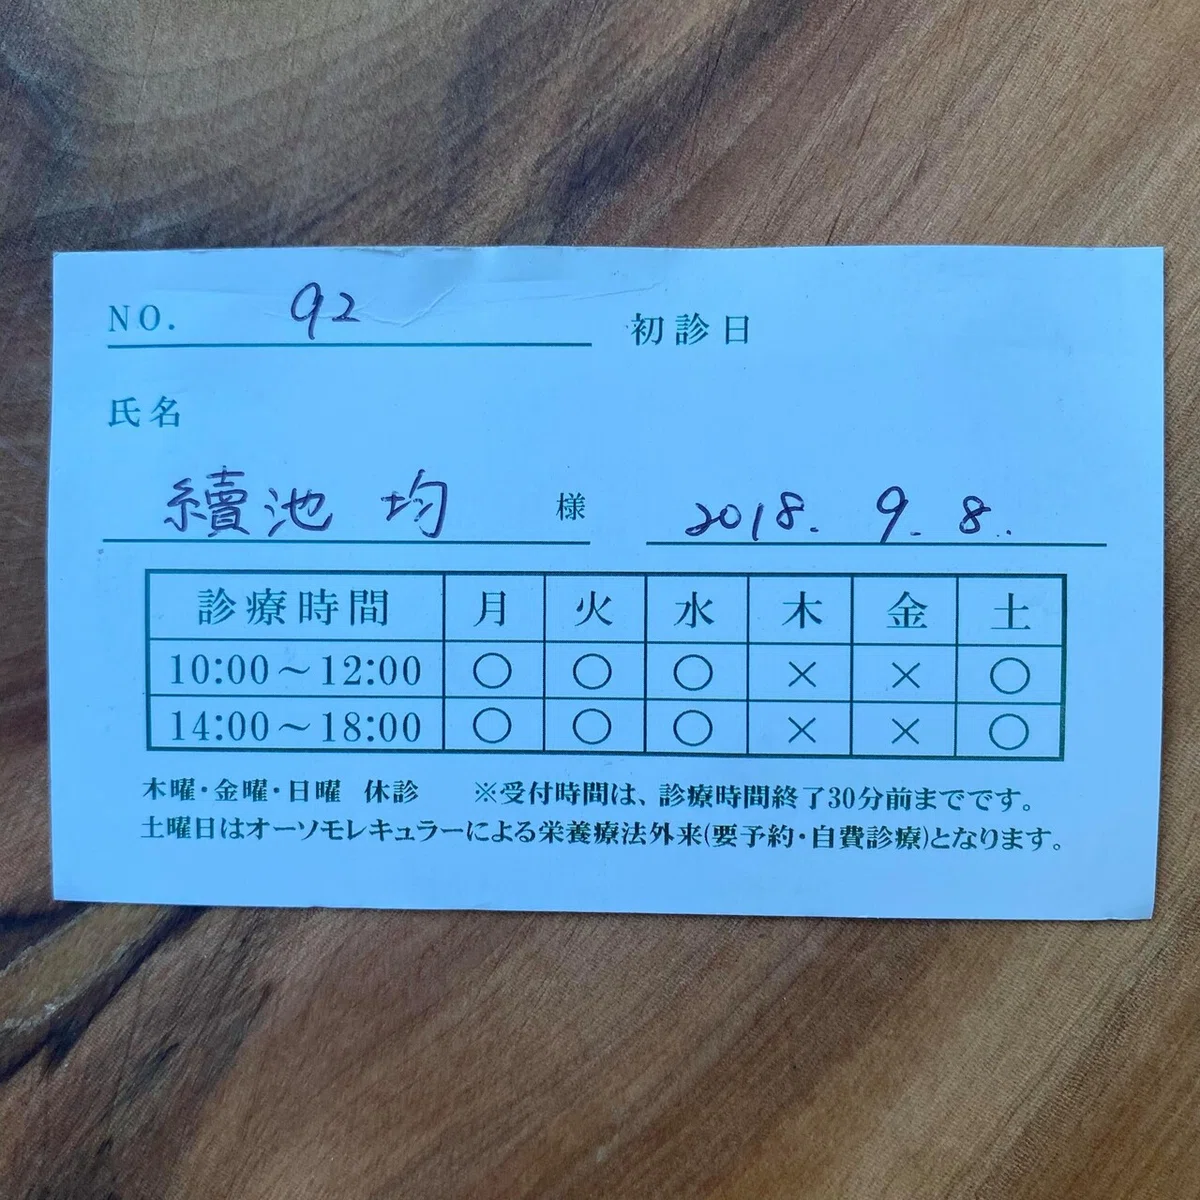 NO. 92 初診日
氏名
續池 均 様 2018. 9. 8.
診療時間 月 火 水 木 金 土
10:00～12:00 ○ ○ ○ × × ○
14:00～18:00 ○ ○ ○ × × ○
木曜・金曜・日曜 休診 ※受付時間は、診療時間終了30分前までです。
土曜日はオーソモレキュラーによる栄養療法外来(要予約・自費診療)となります。